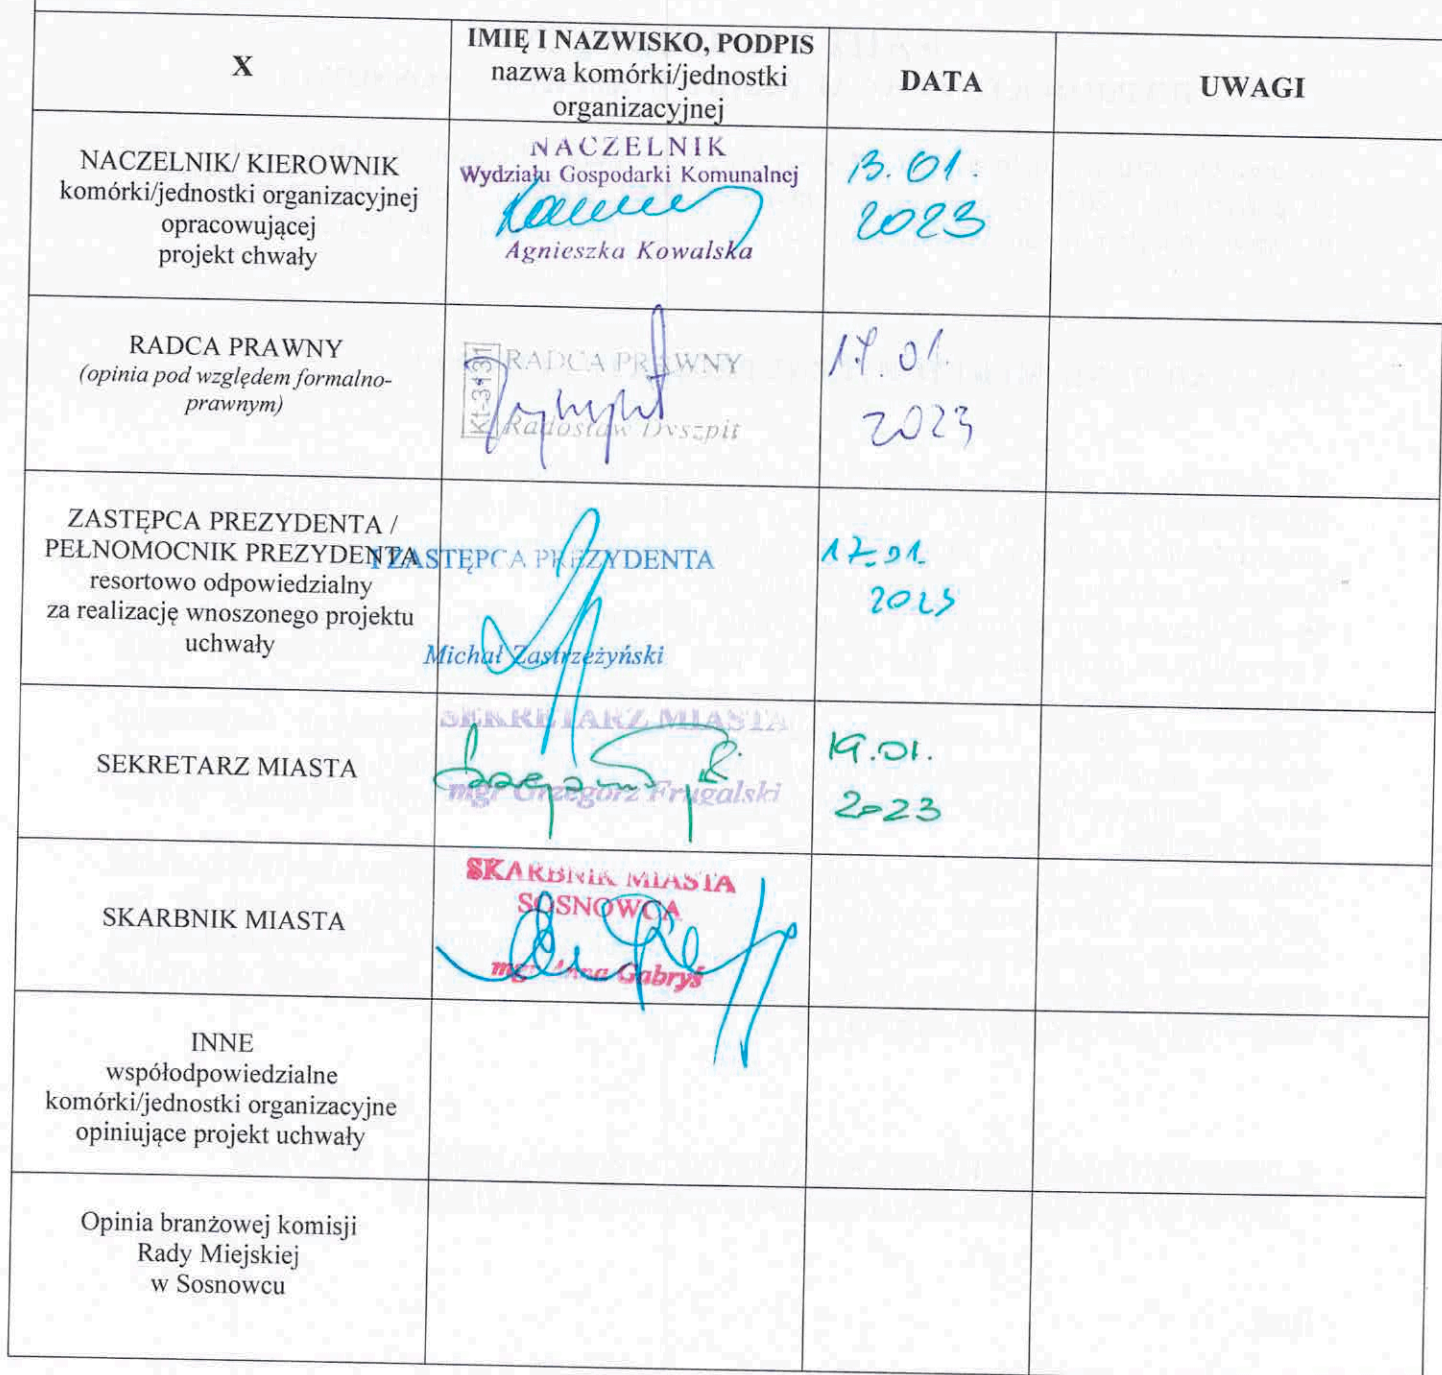 X
IMIĘ I NAZWISKO, PODPIS
nazwa komórki/jednostki
organizacyjnej
DATA
UWAGI
NACZELNIK/ KIEROWNIK
komórki/jednostki organizacyjnej
opracowującej
projekt chwały
NACZELNIK
Wydziału Gospodarki Komunalnej
Agnieszka Kowalska
13.01.
2023
RADCA PRAWNY
(opinia pod względem formalno-
prawnym)
Kt-3131
RADCA PRAWNY
Radosław Dyszpit
17.01.
2023
ZASTĘPCA PREZYDENTA /
PEŁNOMOCNIK PREZYDENTA
resortowo odpowiedzialny
za realizację wnoszonego projektu
uchwały
ZASTĘPCA PREZYDENTA
Michał Zastrzeżyński
17.01.
2023
SEKRETARZ MIASTA
SEKRETARZ MIASTA
mgr Grzegorz Frugalski
19.01.
2023
SKARBNIK MIASTA
SKARBNIK MIASTA
SOSNOWCA
mgr Anna Gabryś
INNE
współodpowiedzialne
komórki/jednostki organizacyjne
opiniujące projekt uchwały
Opinia branżowej komisji
Rady Miejskiej
w Sosnowcu